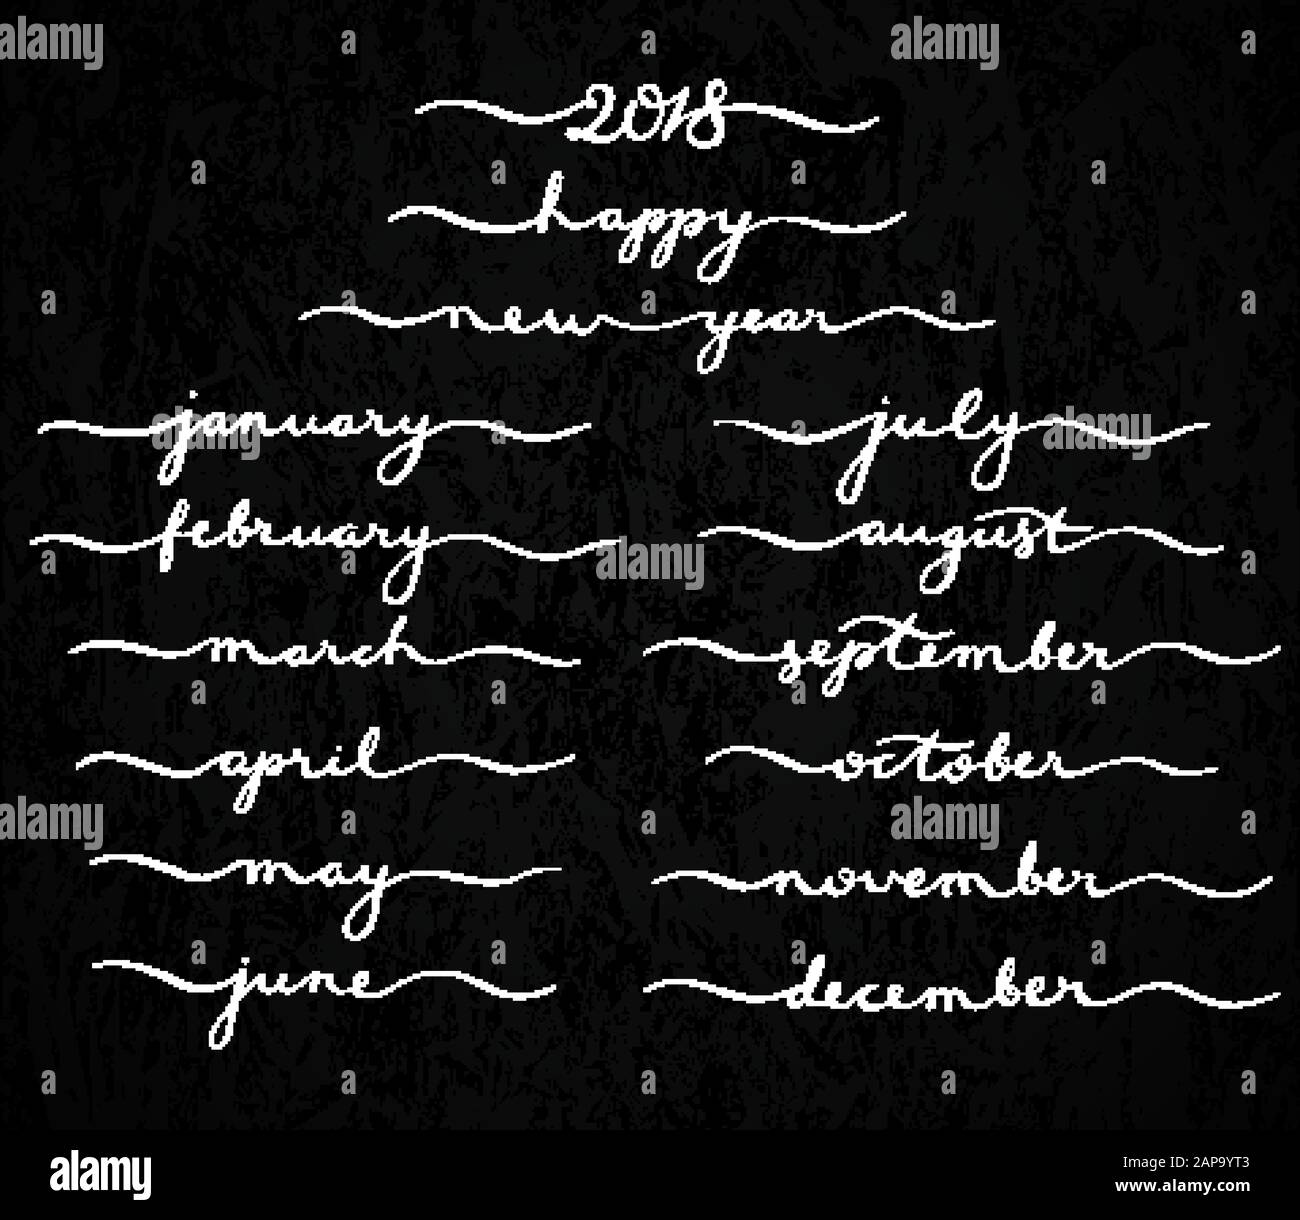 2018
happy
new year
january
february
march
april
may
june
july
august
september
october
november
december
alamy
Image ID: 2AP9YT3
www.alamy.com